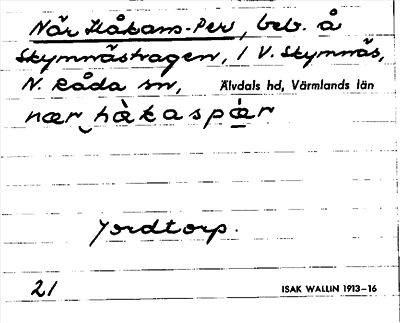 När Håkans-Per, beb. å
Skymnäshagen, / V. Skymnäs,
N. Råda sn, Älvdals hd, Värmlands län
nær hàkaspær
Jordtorp.
21 ISAK WALLIN 1913–16